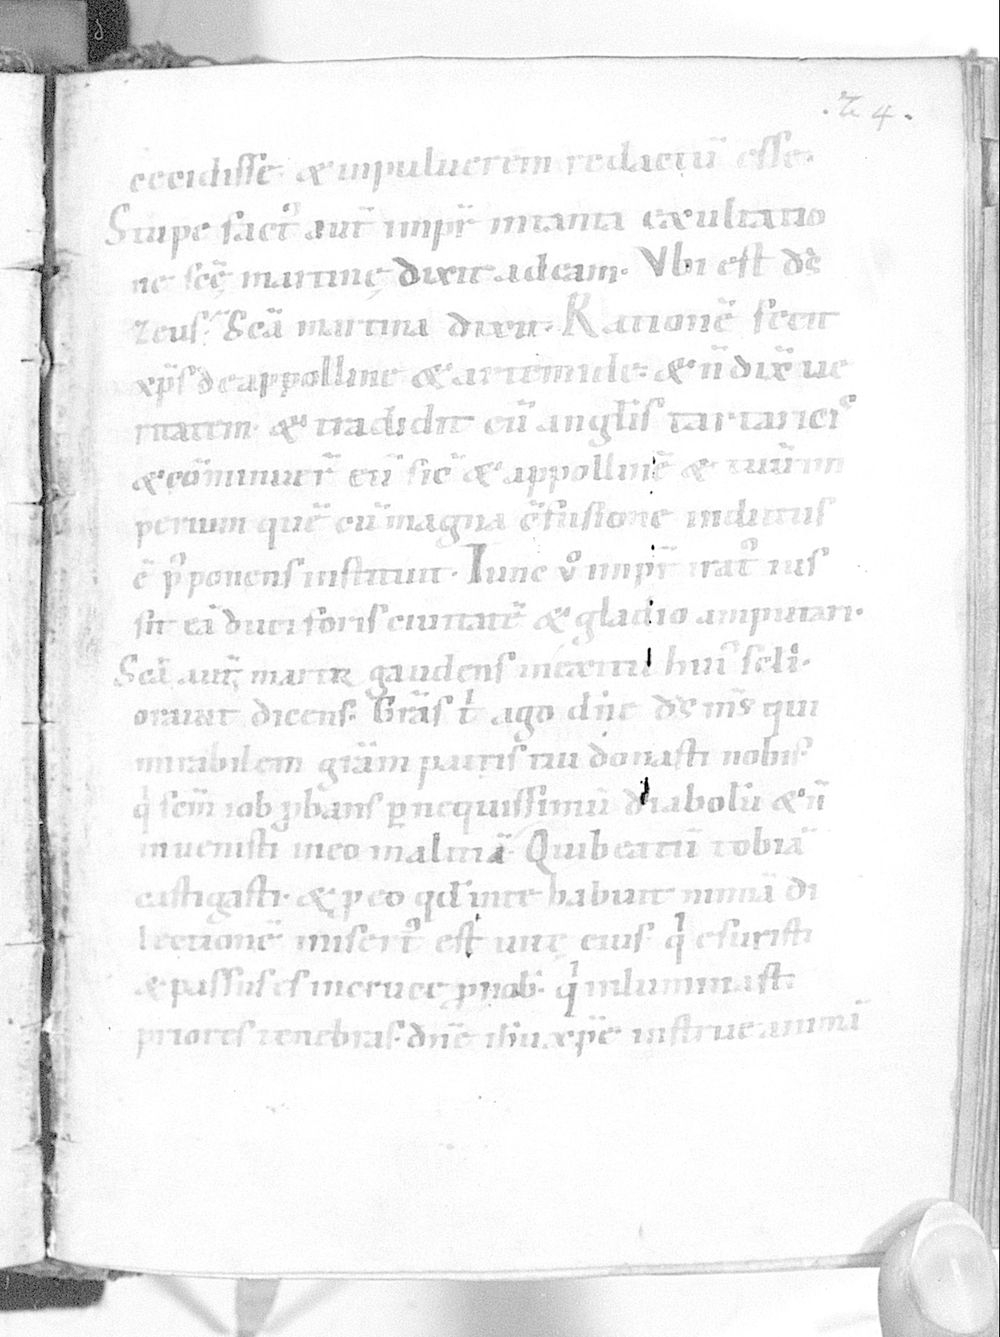 .24.
cecidisse. & inpuluerem redactū esse.
Stupe fact᷒ aut̄ imp̄r intanta exultatio
ne sc̄ę martinę dixit adeam. Vbi est d̄s
zeus. Sc̄a martina dixit. Rationē fecit
xp̄s deappolline & artemide. & n̄ dix̄ ue
ritatem. & tradidit eū angl̄is tartarici᷒
& cōminuer̄ eū sic̄ & appollinē & tuū im
perium quē cū magna c̄fusione indutus
ē p̄ponens instituit. Tunc v̊ imp̄r irat᷒ ius
sit eā duci foris ciuitatē & gladio amputari.
Sc̄a aut̄ martī gaudens inexitu hui᷒ sc̄li.
orauit dicens. Gr̄as t̍ ago dn̄e d̄s m̄s qui
mirabilem gr̄am patris tui donasti nobis
q̍ sc̄m iob ꝓbans ꝑ nequissimū diabolū & n̄
inuenisti ineo malitiā. Qui beatū tobiā
castigasti. & ꝓ eo qđ inte habuit nimiā di
lectionē misert᷒ est uitę eius. q̍ esuristi
& passus es incruce ꝓ nob̄. q̍ inluminasti
priores tenebras. dn̄e ih̄u xp̄e instrue animā